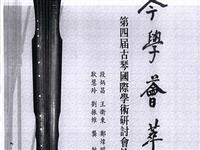 學薈萃
第四屆古琴國際學術研討會
段炳昌 王衛東 鄭煒明
耿慧玲 劉振維 龔